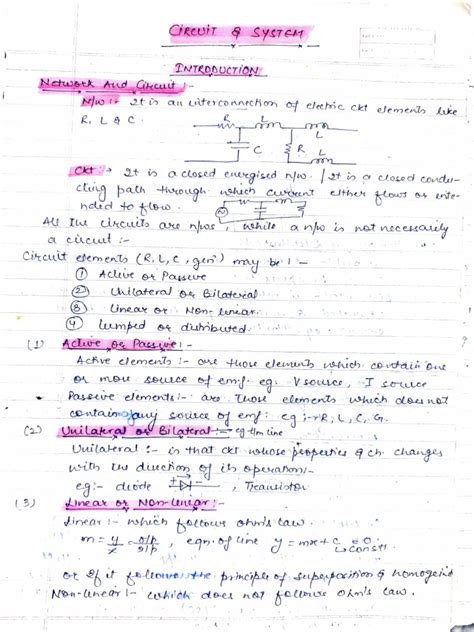 CIRCUIT & SYSTEM
INTRODUCTION
Network And Circuit :
N/w :- It is an interconnection of electric ckt elements like
R, L & C.
R L L
C R L
Ckt :- It is a closed energised n/w. / It is a closed condu-
cting path through which current either flows or inte-
nded to flow.
All the circuits are n/ws, while a n/w is not necessarily
a circuit :-
Circuit elements (R, L, C, gen) may be :-
① Active or Passive
② Unilateral or Bilateral
③ Linear or Non-linear
④ Lumped or distributed.
(1) Active or Passive :-
Active elements :- are those elements which contain one
or more source of emf. eg. V source, I source
Passive elements :- are those elements which does not
contain any source of emf: eg :- R, L, C, G.
(2) Unilateral or Bilateral :- eg tlm line
Unilateral :- is that ckt whose properties & ch. changes
with the direction of its operation:-
eg:- diode , Transistor
(3) Linear or Non-linear :-
Linear :- which follows ohm's law.
m = y/x = o/p / i/p , eqn. of line y = mx + c = 0
Const!
or If it follows the principle of superposition & homogeint
Non-linear :- which does not follows Ohm's law.